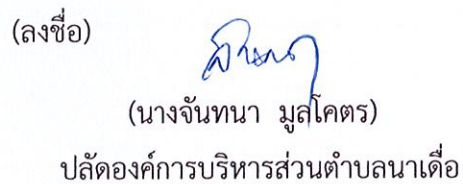 (ลงชื่อ)
(นางจันทนา มูลโคตร)
ปลัดองค์การบริหารส่วนตำบลนาเดื่อ